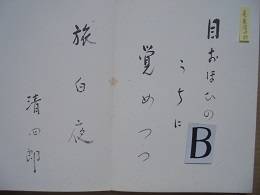 目おほひの
うちに
覚めつつ
旅白夜
清四郎
B